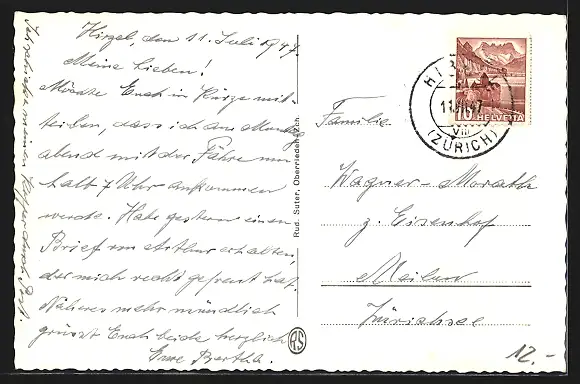 Hirzel, den 11. Juli 1947.
Meine Lieben!
Möchte Euch in Kürze mit-
teilen, dass ich am Montag
abend mit der Fähre um
halb 7 Uhr ankommen
werde. Habe gestern einen
Brief von Arthur erhalten,
der mich recht gefreut hat.
Näheres mehr mündlich
grüsst Euch beide herzlich
Eure Bertha.
Ich schicke meinen Koffer durch Post.
Rud. Suter, Oberrieden-Zch.
RS
HIRZEL
11.VII.47
VIII
(ZÜRICH)
10 HELVETIA
Familie
Wagner-Morath
z. Eisenhof
Meilen
Zürichsee
12.-